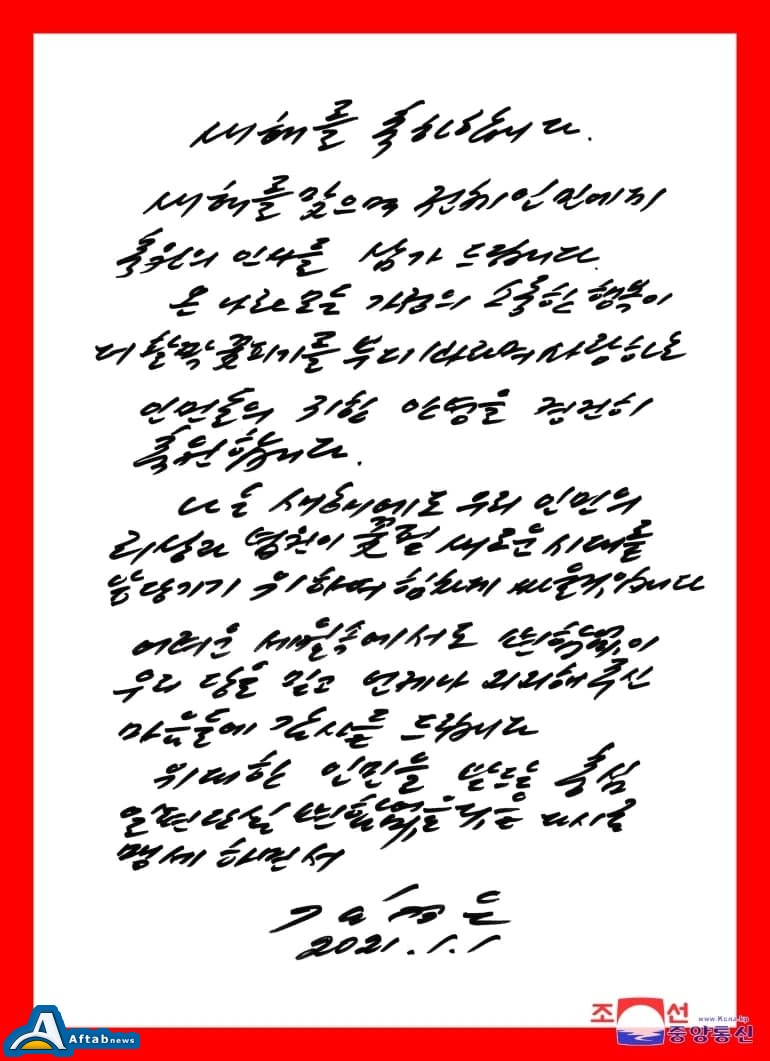 새해를 축하합니다.
새해를 맞으며 전체 인민에게
축원의 인사를 삼가 드립니다.
온 나라 모든 가정의 소중한 행복이
더 활짝 꽃피기를 부디 바라며 사랑하는
인민들의 귀한 안녕을 경건히
축원합니다.
나는 새해에도 우리 인민의
리상과 념원이 꽃필 새로운 시대를
앞당기기 위하여 힘차게 싸울것입니다
어려운 세월속에서도 변함없이
우리 당을 믿고 언제나 지지해주신
마음들에 감사를 드립니다
위대한 인민을 받드는 충심
일편단심 변함없을것을 다시금
맹세하면서
김정은
2021.1.1
조선 www.Kcna.kp
중앙통신
Aftabnews